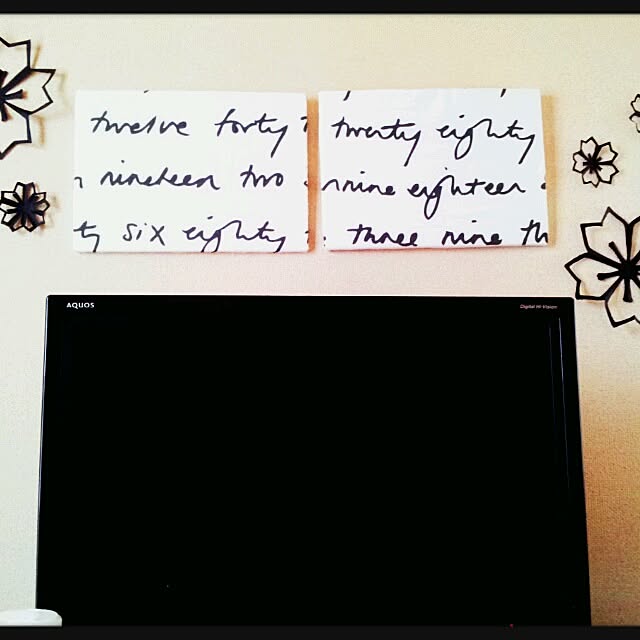 twelve forty
nineteen two
ty six eighty
twenty eighty
nine eighteen
three nine th
AQUOS
Digital Hi-Vision